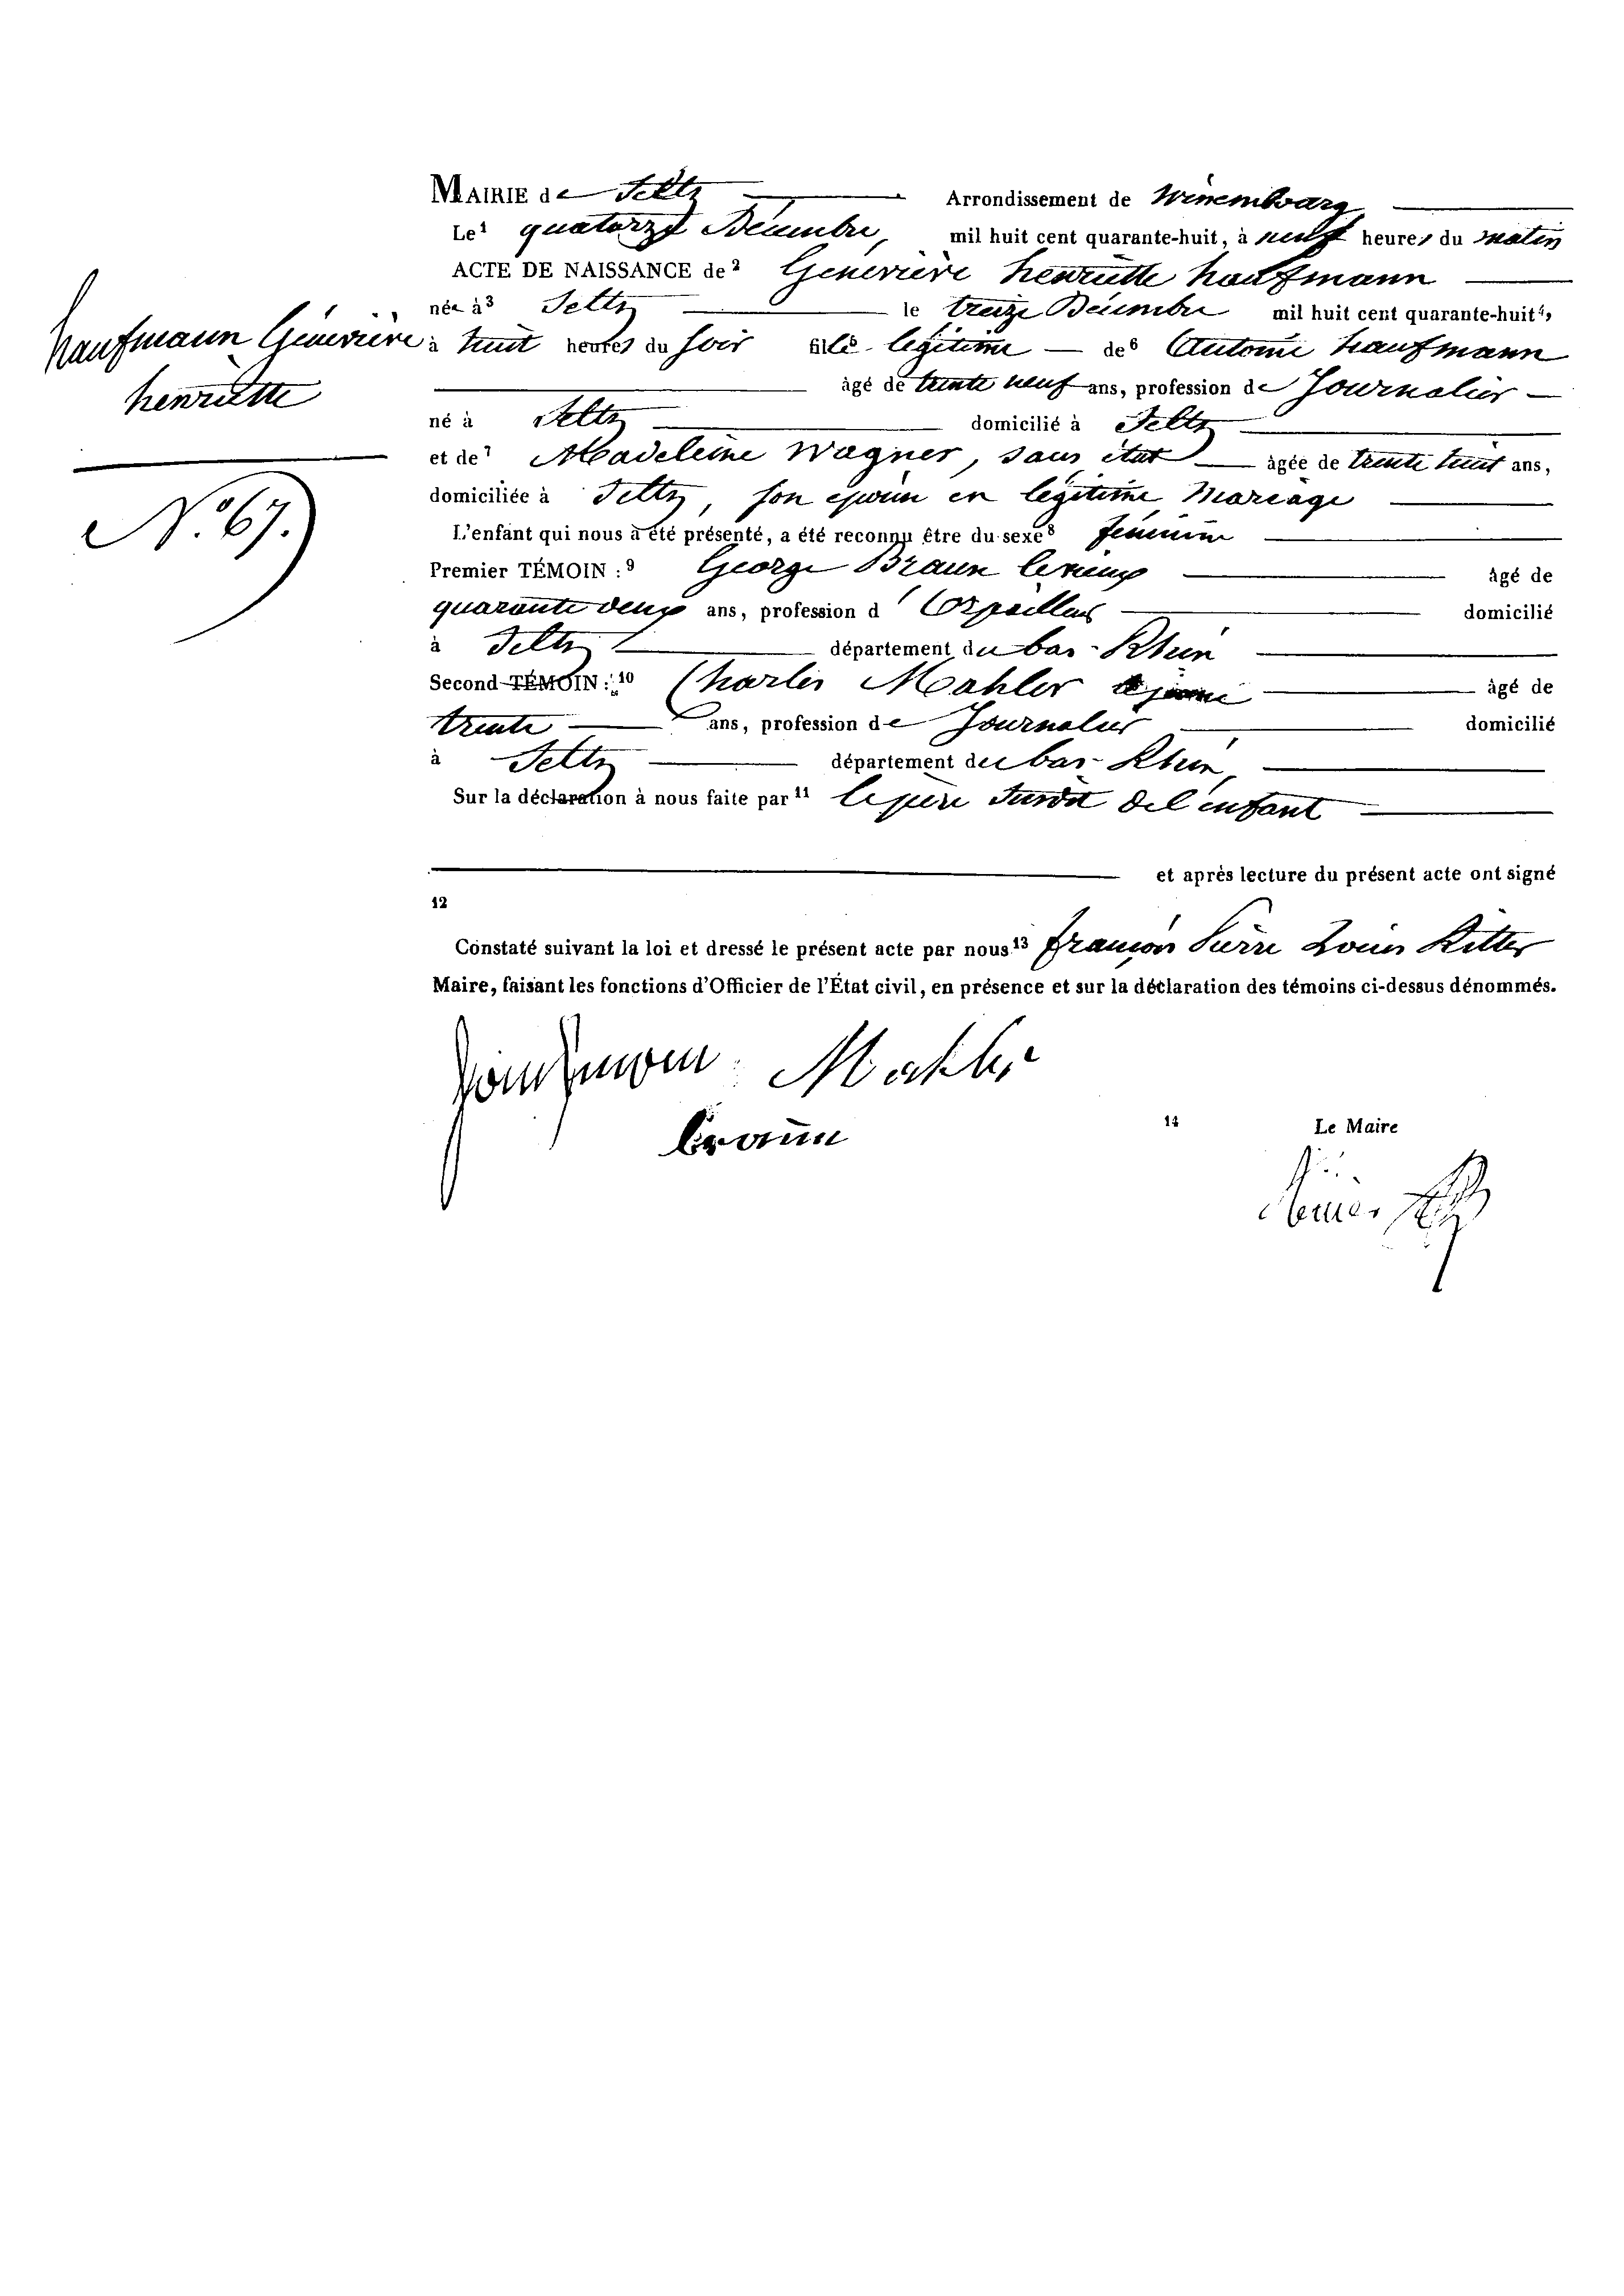 Kaufmann Généviève
henriette
N.° 67.
MAIRIE de Seltz Arrondissement de Winembourg
Le¹ quatorze Décembre, mil huit cent quarante-huit, à neuf heures du matin
ACTE DE NAISSANCE de² Généviève henriette Kaufmann
née à³ Seltz le treize Décembre mil huit cent quarante-huit⁴,
à huit heures du soir fille⁵ légitime de⁶ Antoine Kaufmann
âgé de trente neuf ans, profession de Journalier
né à Seltz domicilié à Seltz
et de⁷ Madeleine Wagner, sans état âgée de trente huit ans,
domiciliée à Seltz, son épouse en légitime mariage
L'enfant qui nous a été présenté, a été reconnu être du sexe⁸ féminin
Premier TÉMOIN :⁹ George Braun le vieux âgé de
quarante deux ans, profession d' Orpailleur domicilié
à Seltz département du bas-Rhin
Second TÉMOIN :¹⁰ Charles Mahler âgé de
trente ans, profession de Journalier domicilié
à Seltz département du bas-Rhin,
Sur la déclaration à nous faite par¹¹ le père susdit de l'enfant
et après lecture du présent acte ont signé
12
Constaté suivant la loi et dressé le présent acte par nous¹³ françois Pierre Louis Ritter
Maire, faisant les fonctions d'Officier de l'État civil, en présence et sur la déclaration des témoins ci-dessus dénommés.
Kaufmann Mahler
braun
14 Le Maire